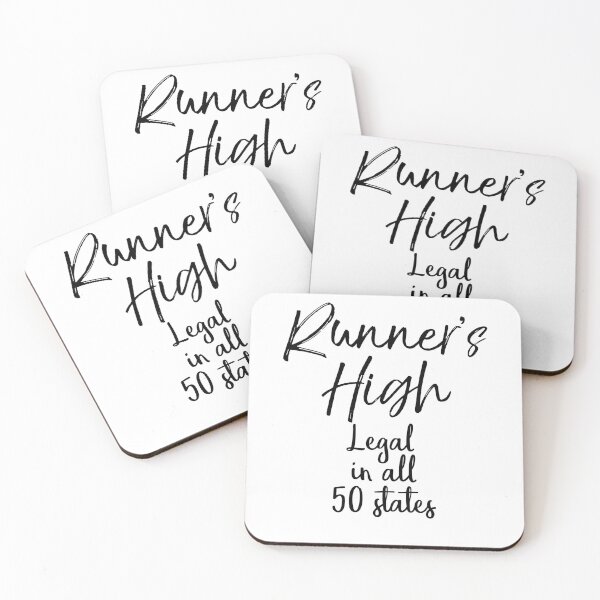 Runner's
High
Runner's
High
Legal
in all
Runner's
High
Legal
in all
50 states
Runner's
High
Legal
in all
50 states